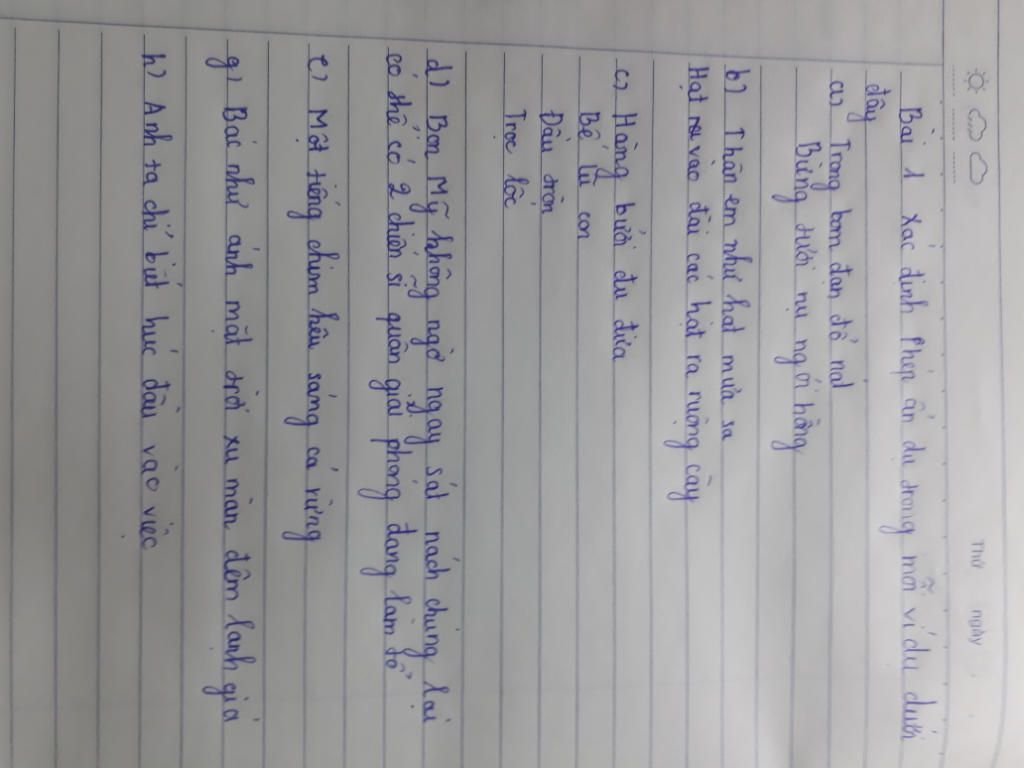 Thứ ngày
Bài 1 Xác định phép ẩn dụ trong mỗi ví dụ dưới
đây
a) Trong bom đạn đổ nát
Bừng tươi nụ ngói hồng
b) Thân em như hạt mưa sa
Hạt vào đài các hạt ra ruộng cày
c) Hàng bưởi đu đưa
Bế lũ con
Đầu tròn
Trọc lốc
d) Bọn Mỹ không ngờ ngay sát nách chúng lại
có thể có 2 chiến sĩ quân giải phóng đang làm tổ
e) Một tiếng chim kêu sáng cả rừng
g) Bác như ánh mặt trời xu màn đêm lạnh giá
h) Anh ta chỉ biết húc đầu vào việc